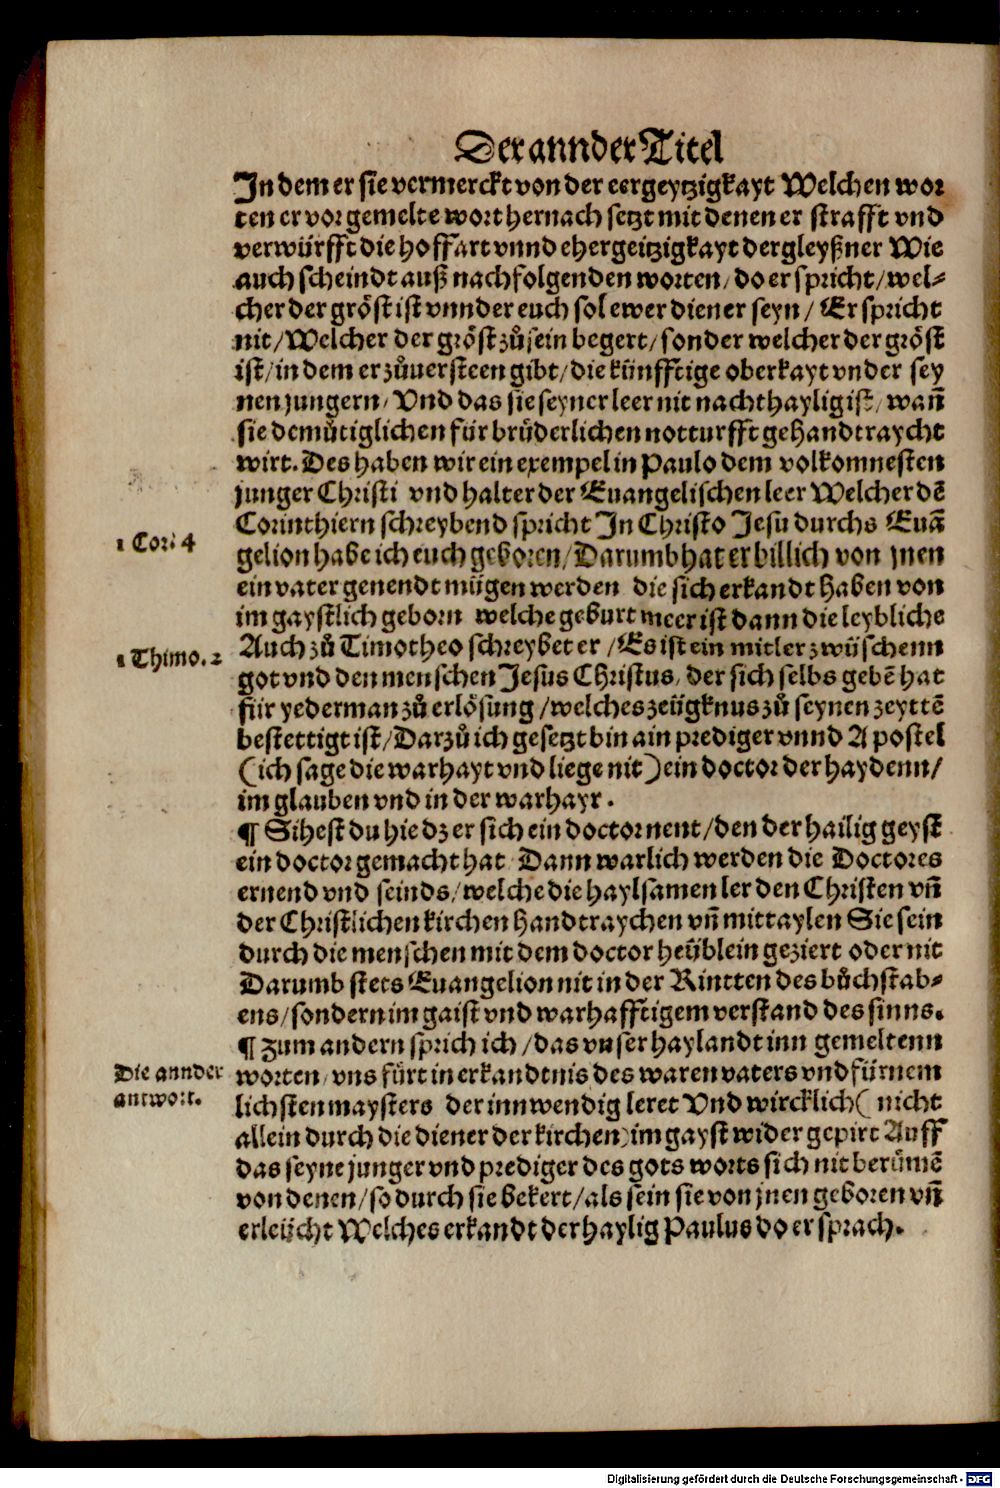 Der annder Titel
In dem er sie vermerckt von der eergeytzigkayt Welchen wor
ten er vor gemelte wort hernach setzt mit denen er strafft vnd
verwürfft die hoffart vnnd ehergeitzigkayt der gleyßner Wie
auch scheindt auß nachfolgenden worten/ do er spricht/ wel⸗
cher der gröst ist vnnder euch sol ewer diener seyn/ Er spricht
nit/ Welcher der gröst zů sein begert/ sonder welcher der gröst
ist/ in dem er zůuersteen gibt/ die künfftige oberkayt vnder sey
nen jungern/ Vnd das sie seyner leer nit nachthaylig ist/ wañ
sie demütiglichen für brüderlichen notturfft gehandtraycht
wirt. Des haben wir ein exempel in Paulo dem volkomnesten
junger Christi vnd halter der Euangelischen leer Welcher dē
1 Cori 4
Corinthiern schreybend spricht In Christo Jesu durchs Euā
gelion habe ich euch geboren/ Darumb hat er billich von jnen
ein vater genendt mügen werden die sich erkandt haben von
im gaystlich geborn welche geburt meer ist dann die leybliche
1 Thimo. 2
Auch zů Timotheo schreybet er/ Es ist ein mitler zwüschenn
got vnd den menschen Jesus Christus/ der sich selbs gebē hat
für yederman zů erlösung/ welches zeügknus zů seynen zeyttē
bestettigt ist/ Darzů ich gesetzt bin ain prediger vnnd Apostel
(ich sage die warhayt vnd liege nit) ein doctor der haydenn/
im glauben vnd in der warhayt.
¶ Sihest du hie dz er sich ein doctor nent/ den der hailig geyst
ein doctor gemacht hat Dann warlich werden die Doctores
ernend vnd seinds/ welche die haylsamen ler den Christen vñ
der Christlichen kirchen handtraychen vñ mittaylen Sie sein
durch die menschen mit dem doctor heüblein geziert oder nit
Darumb stets Euangelion nit in der Rintten des bůchstab⸗
ens/ sondern im gaist vnd warhafftigem verstand des sinns.
¶ Zum andern sprich ich/ das vnser haylandt inn gemeltenn
Die annder
antwort.
worten/ vns fürt in erkandtnis des waren vaters vnd fürnem
lichsten maysters der innwendig leret Vnd wircklich ( nicht
allein durch die diener der kirchen) im gayst wider gepirt Auff
das seyne junger vnd prediger des gots worts sich nit berümē
von denen/ so durch sie bekert/ als sein sie von jnen geboren vñ
erleücht Welches erkandt der haylig Paulus do er sprach.
Digitalisierung gefördert durch die Deutsche Forschungsgemeinschaft - DFG